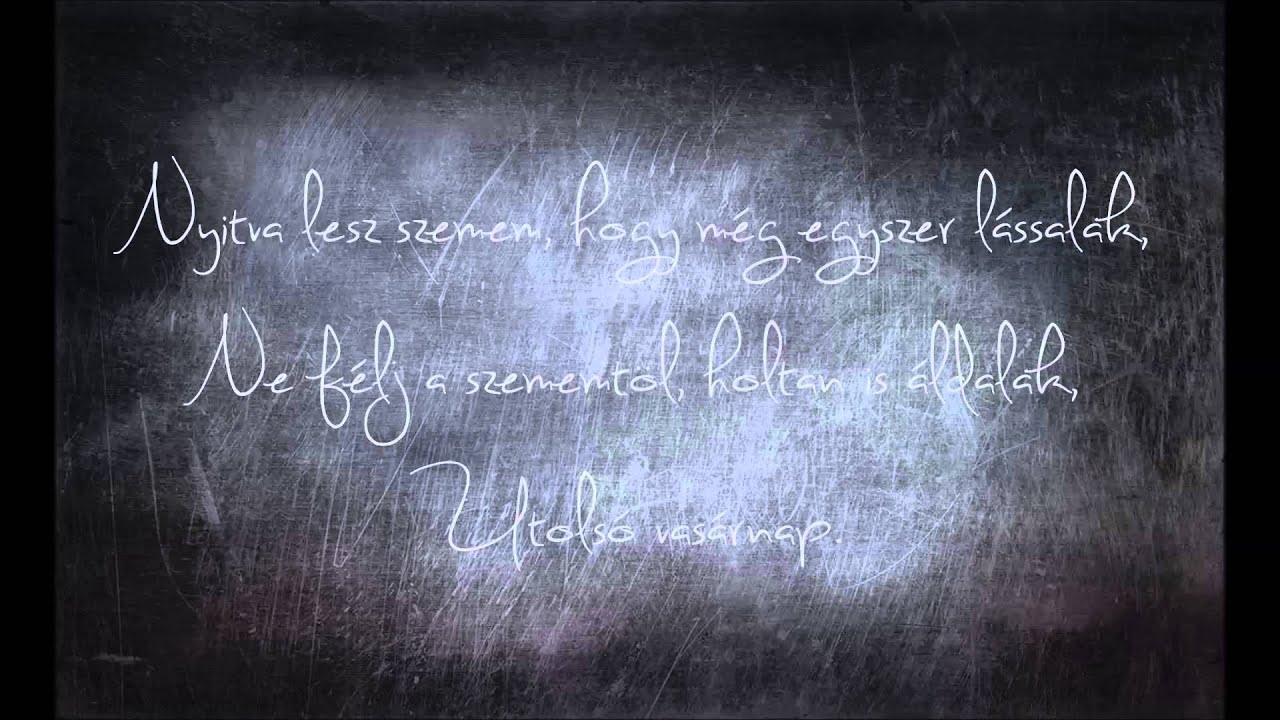 Nyitva lesz szemem, hogy még egyszer lássalak,
Ne félj a szememtol, holtan is áldalak,
Utolsó vasárnap.